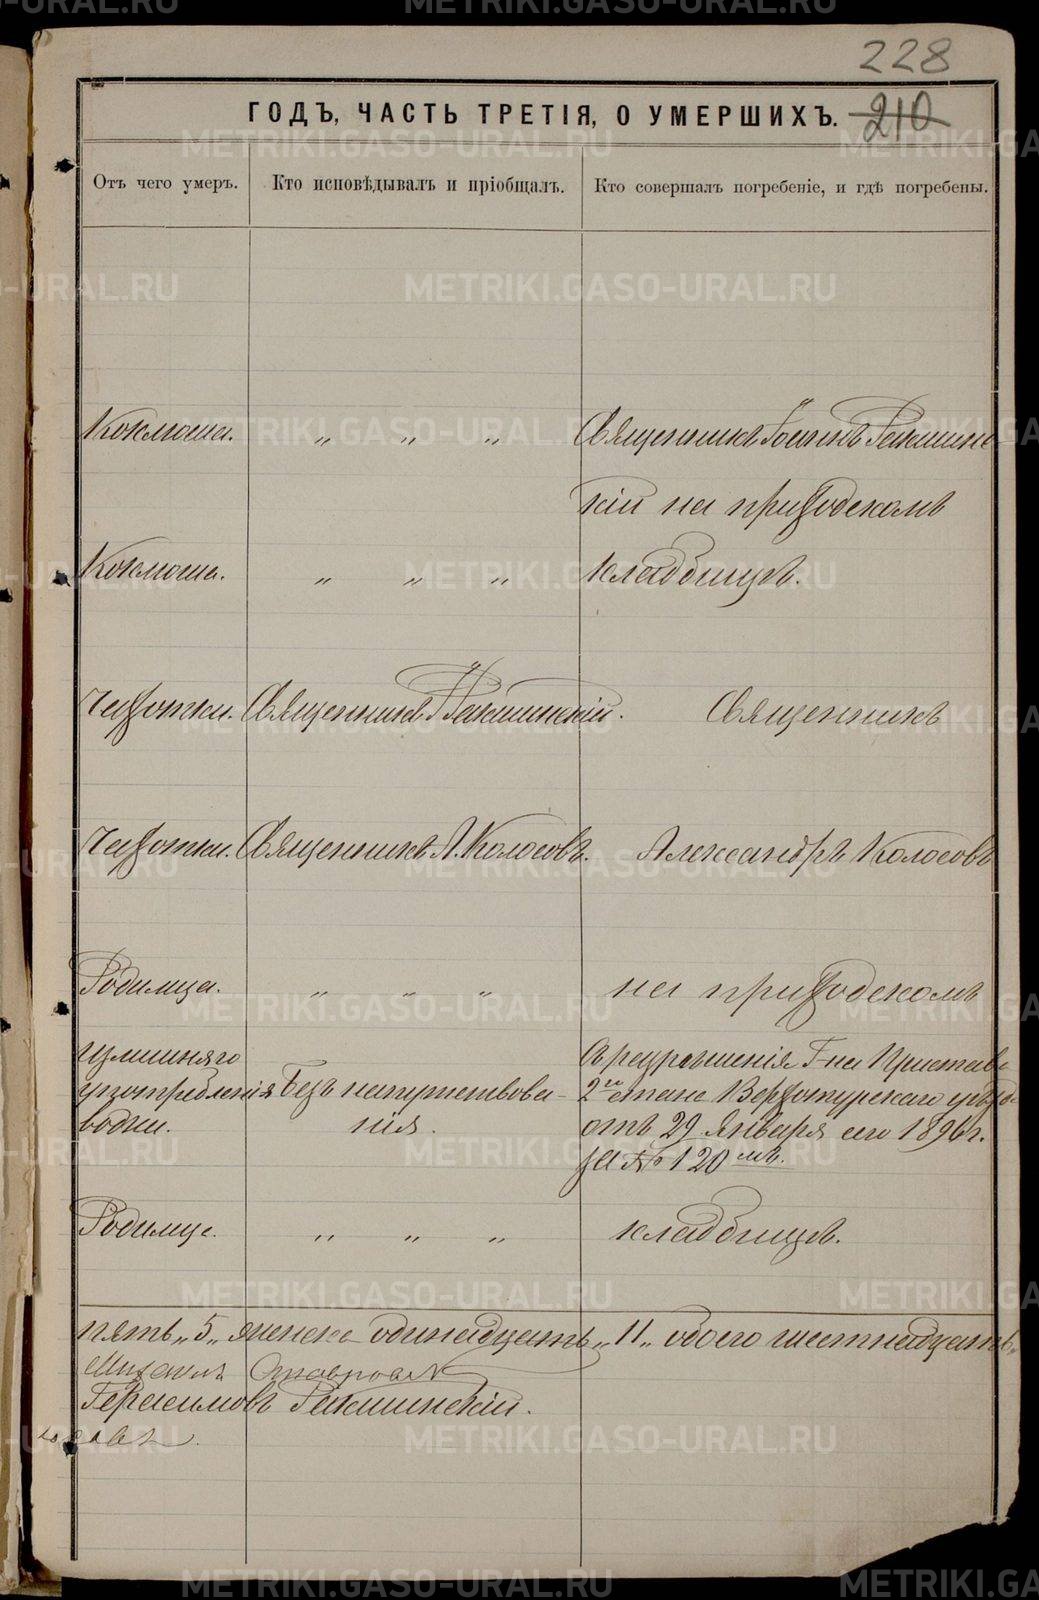 228
ГОДЪ, ЧАСТЬ ТРЕТІЯ, О УМЕРШИХЪ. 210
Отъ чего умеръ. Кто исповѣдывалъ и пріобщалъ. Кто совершалъ погребеніе, и гдѣ погребены.
Коклюша. „ „ „ Священникъ Іоаннъ Рак
кій на приходскомъ
Коклюша. „ „ „ кладбищѣ.
Чахотки. Священникъ Священникъ
Чахотки. Священникъ А. Колосовъ. Александръ Колосовъ
Родимца. „ „ „ на приходскомъ
излишняго
употребленія
водки.
Безъ напутствова-
нія.
Съ разрѣшенія Г-на Пристава
2го стана Верхотурскаго уѣзда
отъ 29 Января сего 1896 г.
за № 120мъ.
Родимца. „ „ „ кладбищѣ.
пять „5„ женска одинадцать „11„ обоего шестнадцать.
Михаилъ
Герасимовъ
METRIKI.GASO-URAL.RU